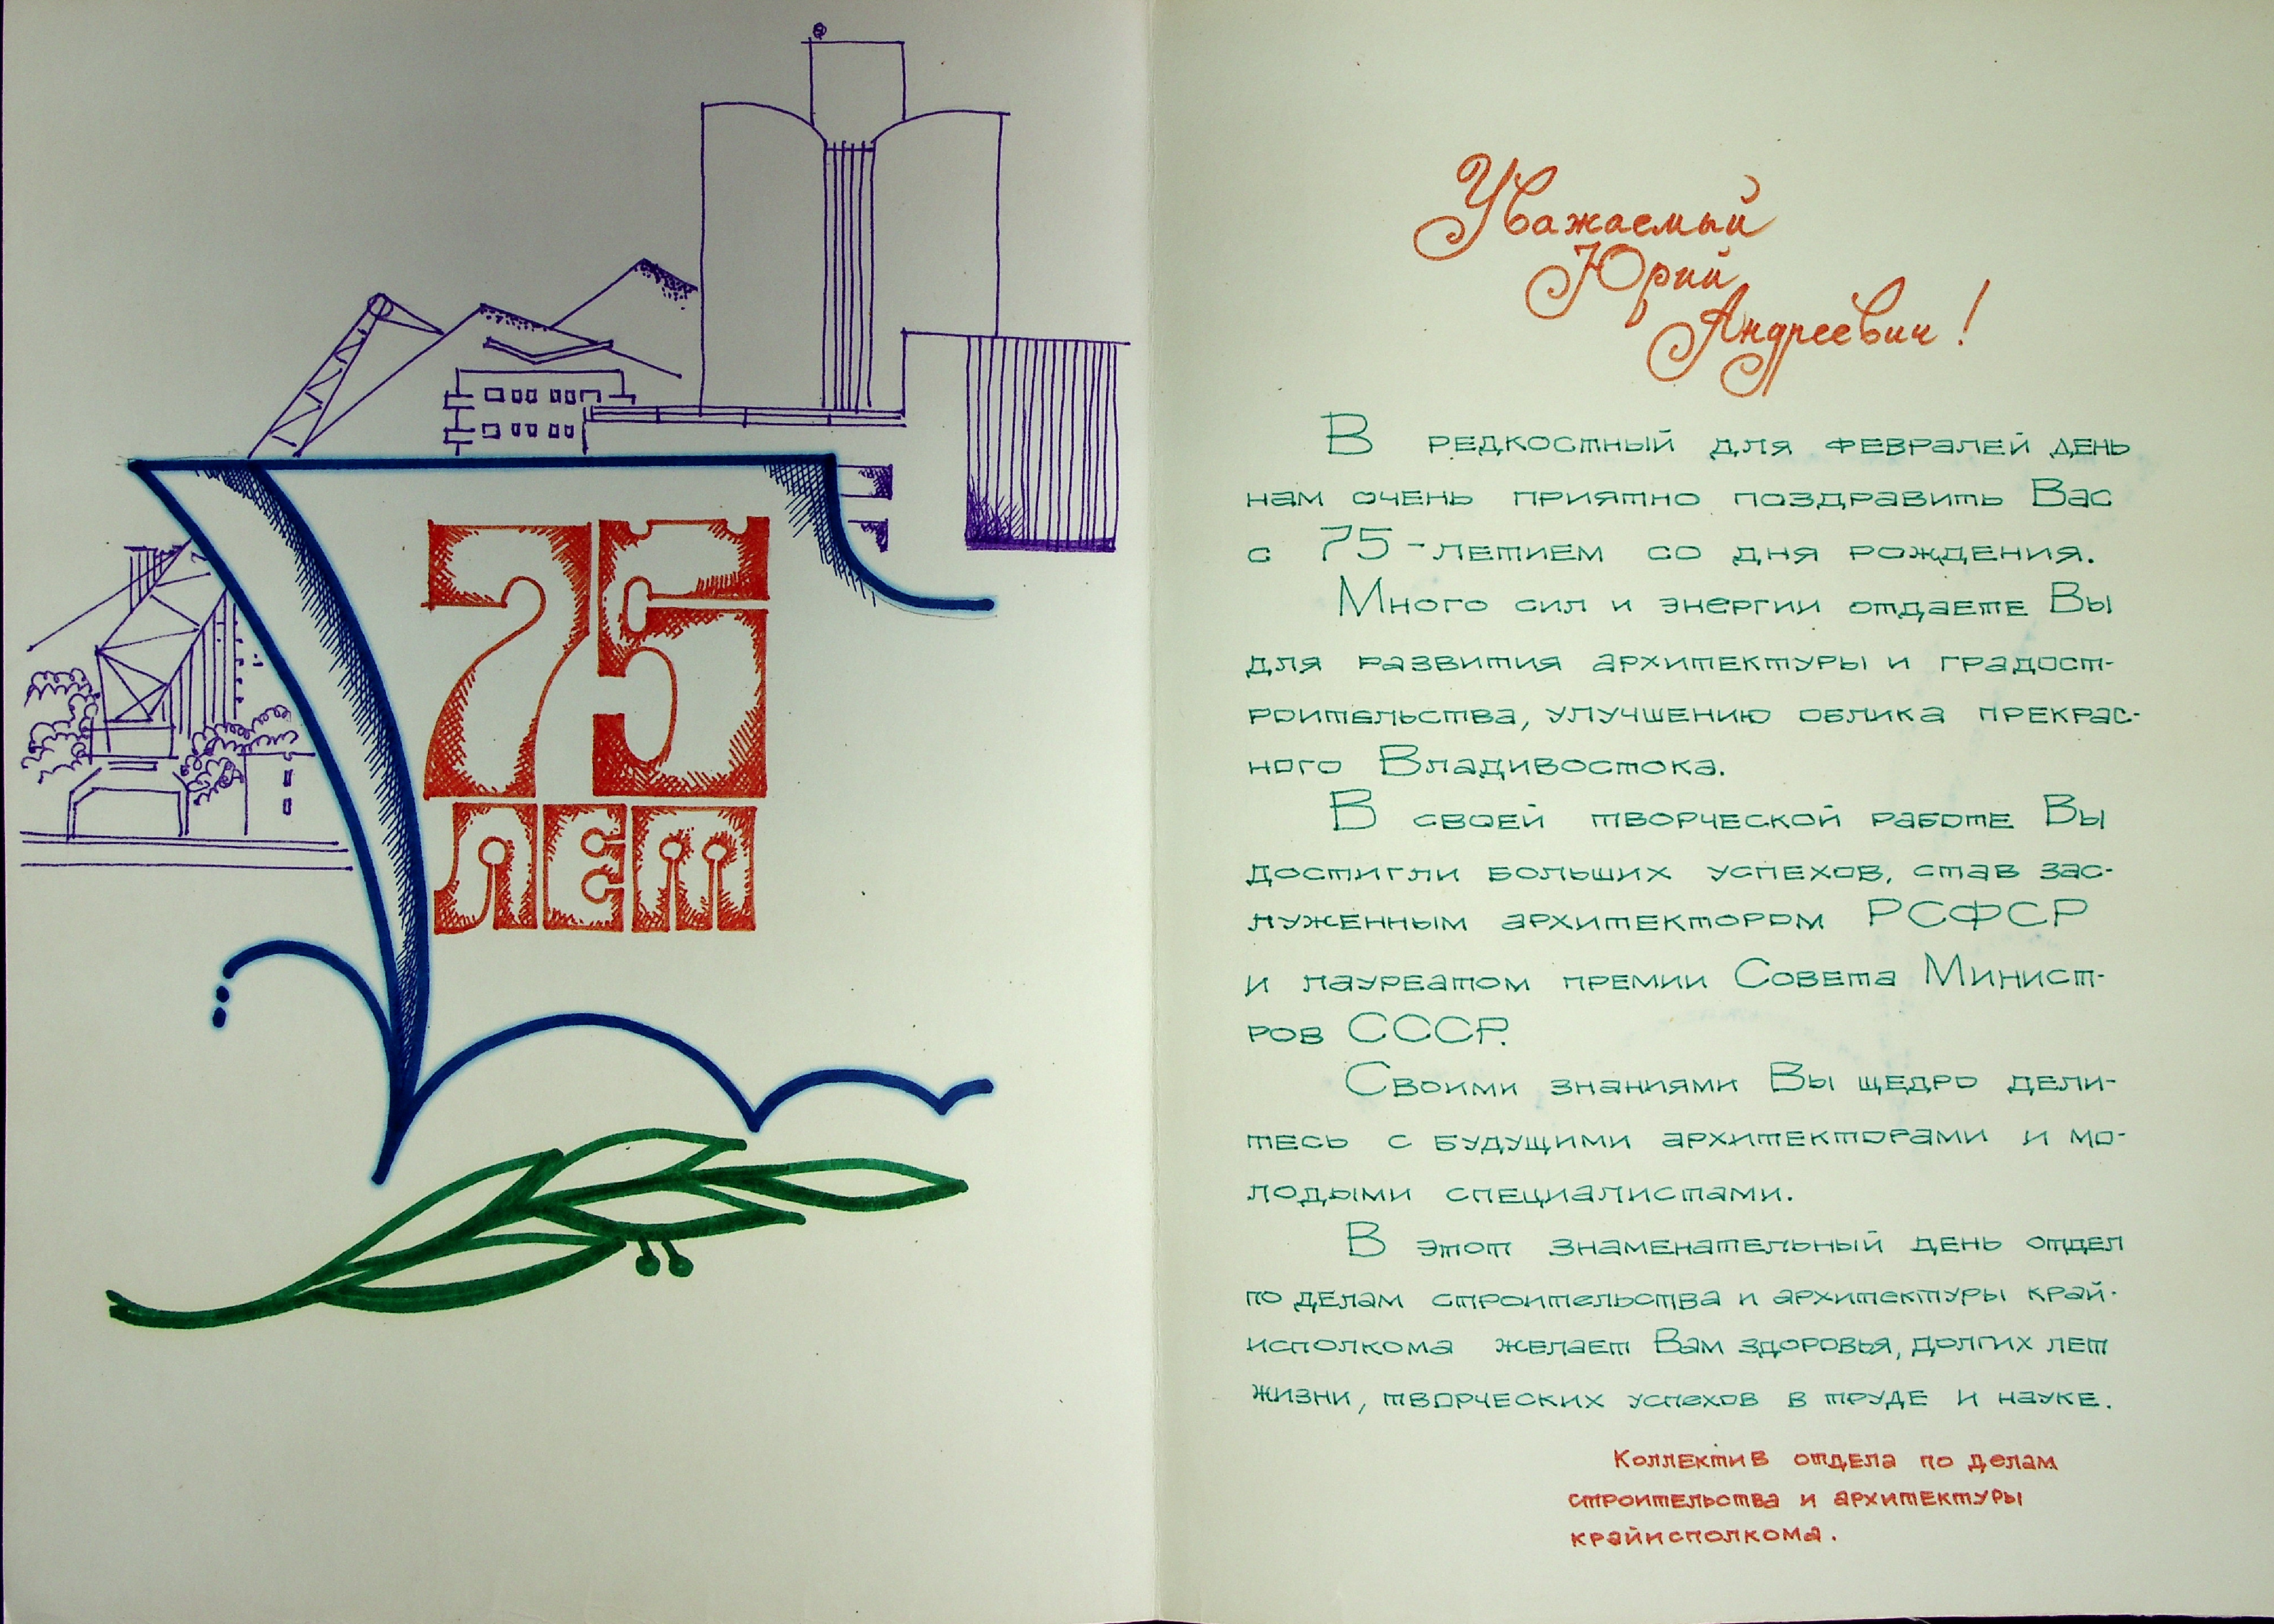 75
лет
Уважаемый
Юрий
Андреевич!
В редкостный для февралей день
нам очень приятно поздравить Вас
с 75-летием со дня рождения.
Много сил и энергии отдаете Вы
для развития архитектуры и градост-
роительства, улучшению облика прекрас-
ного Владивостока.
В своей творческой работе Вы
достигли больших успехов, став зас-
луженным архитектором РСФСР
и лауреатом премии Совета Минист-
ров СССР.
Своими знаниями Вы щедро дели-
тесь с будущими архитекторами и мо-
лодыми специалистами.
В этот знаменательный день отдел
по делам строительства и архитектуры край-
исполкома желает Вам здоровья, долгих лет
жизни, творческих успехов в труде и науке.
Коллектив отдела по делам
строительства и архитектуры
крайисполкома.